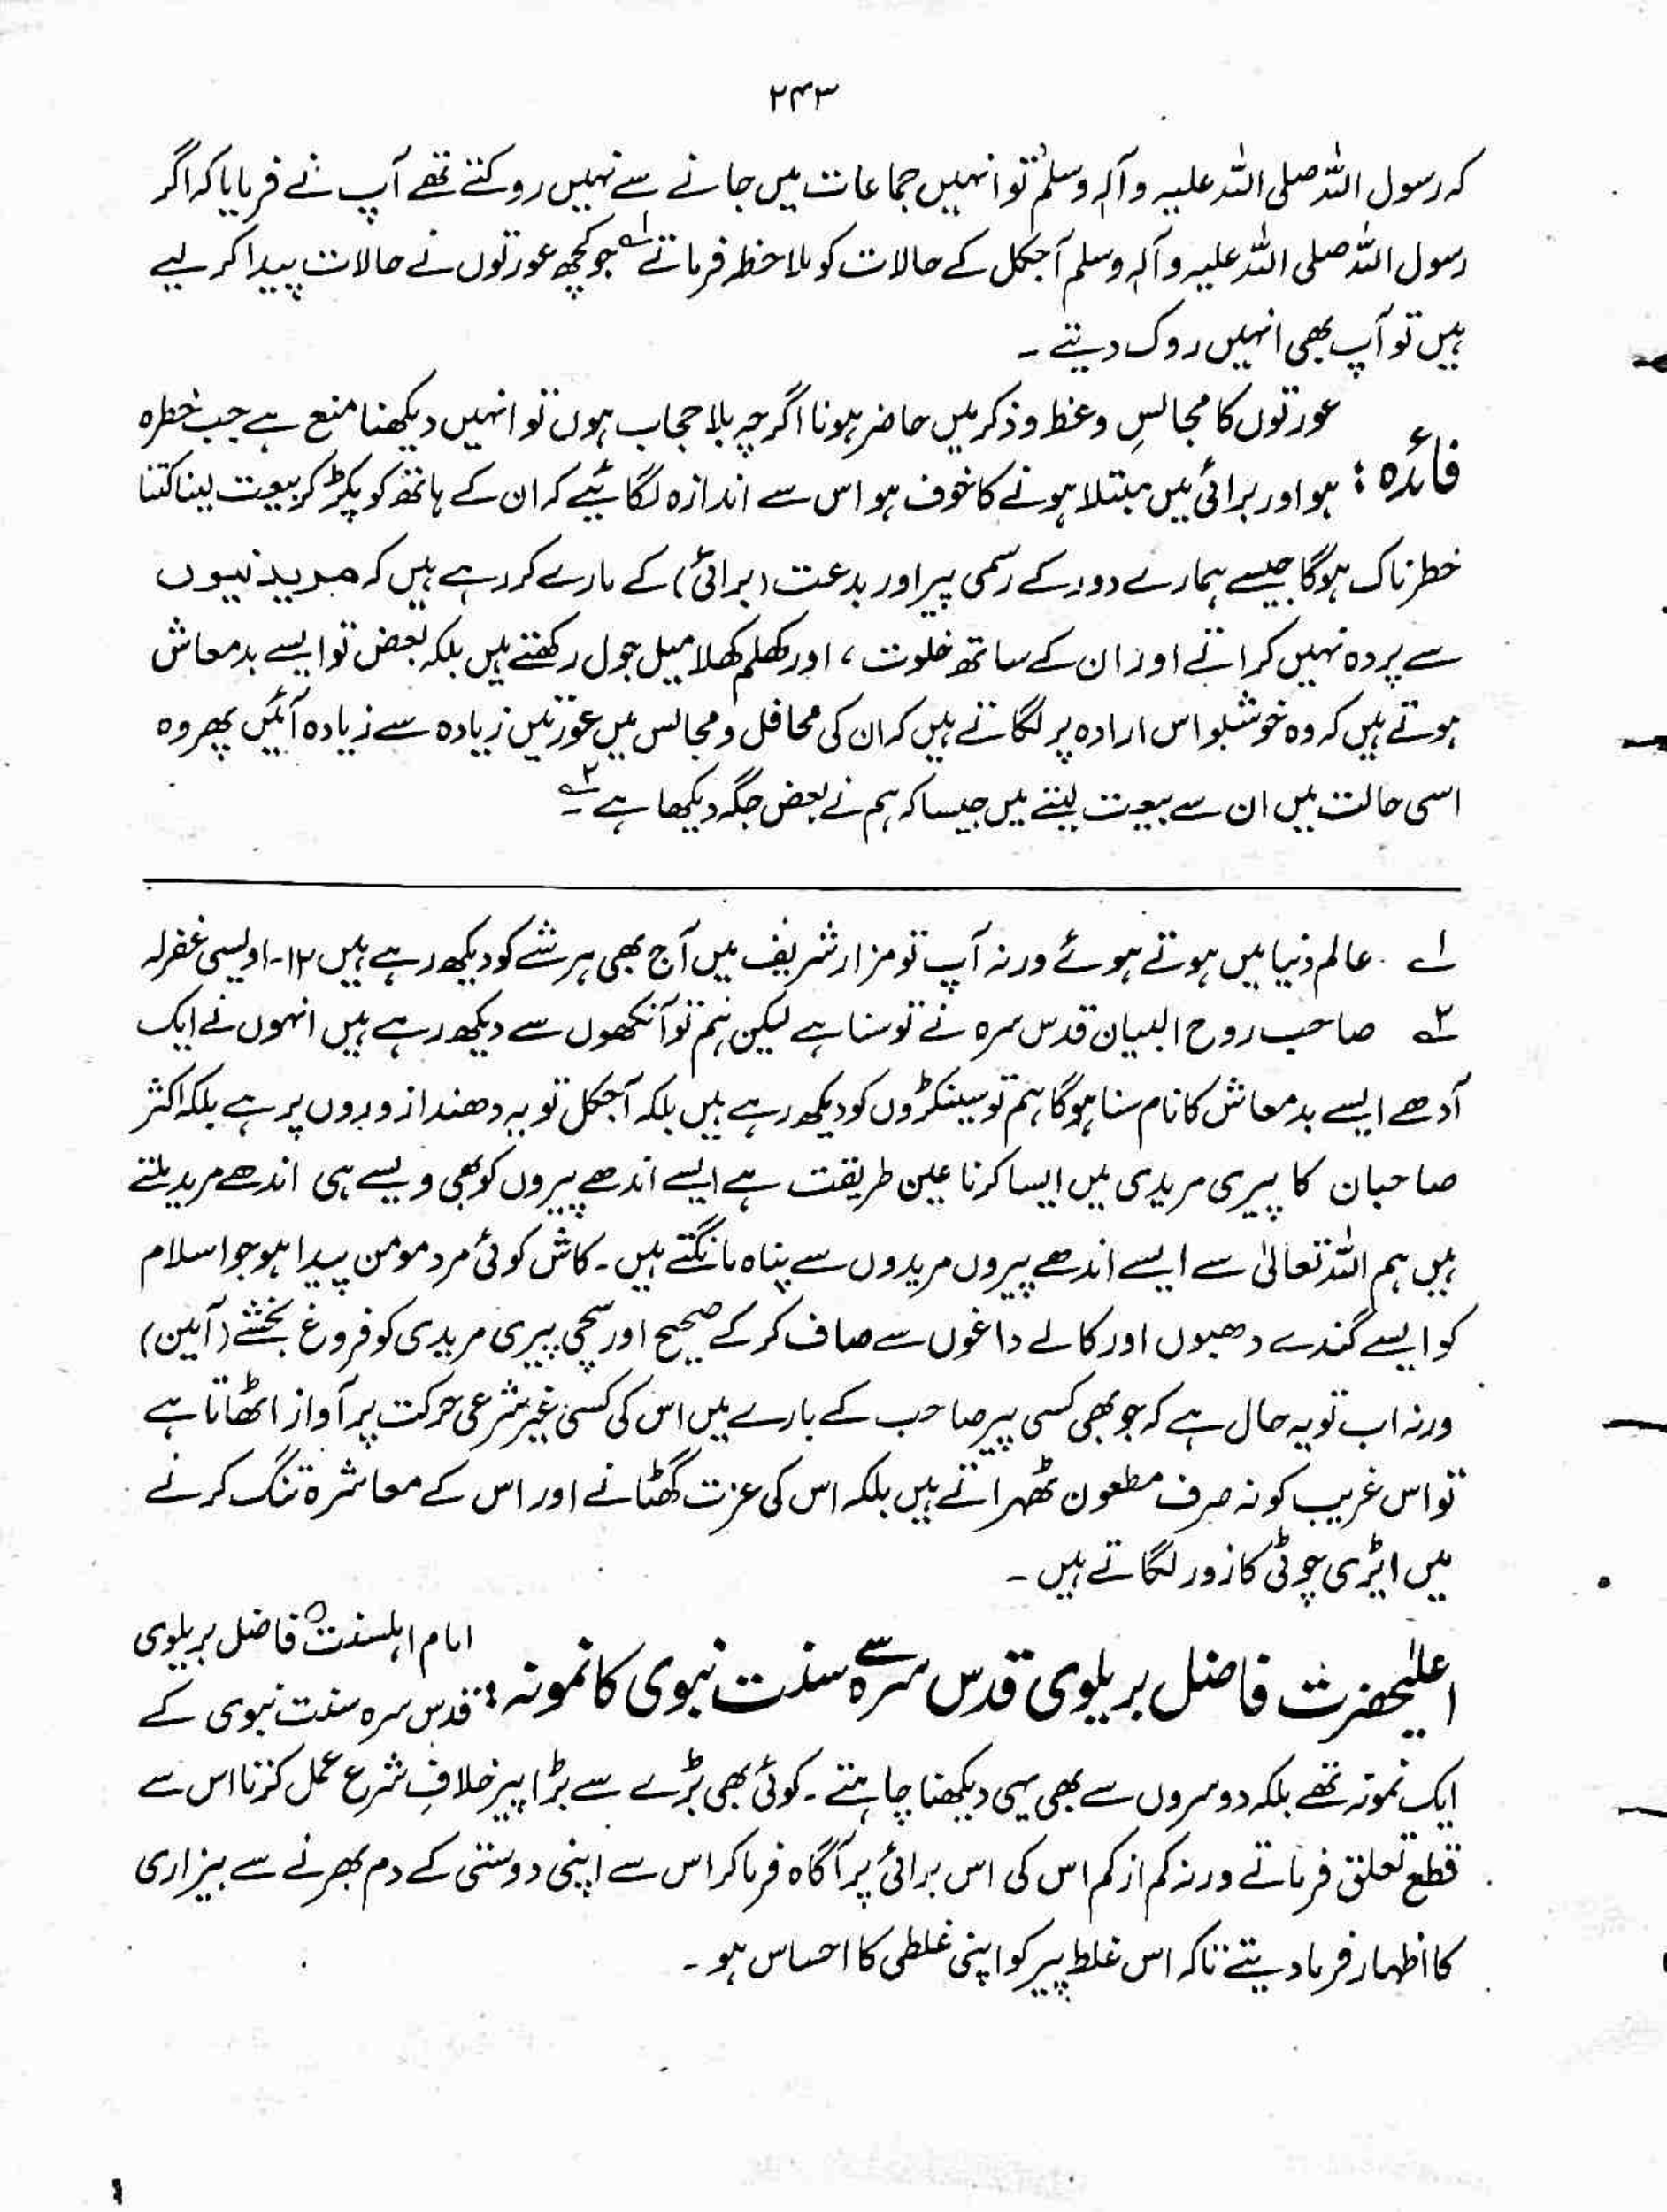 ۲۴۳
کہ رسول اللہ صلی اللہ علیہ وآلہ وسلم تو انہیں جماعات میں جانے سے نہیں روکتے تھے آپ نے فرمایا کہ اگر
رسول اللہ صلی اللہ علیہ وآلہ وسلم آجکل کے حالات کو ملاحظہ فرماتے ۱؎ جو کچھ عورتوں نے حالات پیدا کر لیے
ہیں تو آپ بھی انہیں روک دیتے ۔
عورتوں کا مجالسِ وعظ و ذکر میں حاضر ہونا اگرچہ بلا حجاب ہوں تو انہیں دیکھنا منع ہے جب خطرہ
فائدہ : ہو اور برائی میں مبتلا ہونے کا خوف ہو اس سے اندازہ لگائیے کہ ان کے ہاتھ کو پکڑ کر بیعت لینا کتنا
خطرناک ہوگا جیسے ہمارے دور کے رسمی پیر اور بدعت (برائی) کے مارے کر رہے ہیں کہ مریدنیوں
سے پردہ نہیں کراتے اور ان کے ساتھ خلوت ، اور کھلم کھلا میل جول رکھتے ہیں بلکہ بعض تو ایسے بدمعاش
ہوتے ہیں کہ وہ خوشبو اس ارادہ پر لگاتے ہیں کہ ان کی محافل و مجالس میں عورتیں زیادہ سے زیادہ آئیں پھر وہ
اسی حالت میں ان سے بیعت لیتے ہیں جیسا کہ ہم نے بعض جگہ دیکھا ہے ۲؎ ۔
۱؎ . عالم دنیا میں ہوتے ہوئے ورنہ آپ تو مزار شریف میں آج بھی ہر شے کو دیکھ رہے ہیں ۱۲- اویسی غفرلہ
۲؎ صاحب روح البیان قدس سرہ نے تو سنا ہے لیکن ہم تو آنکھوں سے دیکھ رہے ہیں انہوں نے ایک
آدھے ایسے بدمعاش کا نام سنا ہوگا ہم تو سینکڑوں کو دیکھ رہے ہیں بلکہ آجکل تو یہ دھندا زوروں پر ہے بلکہ اکثر
صاحبان کا پیری مریدی میں ایسا کرنا عین طریقت ہے ایسے اندھے پیروں کو بھی ویسے ہی اندھے مرید ملتے
ہیں ہم اللہ تعالیٰ سے ایسے اندھے پیروں مریدوں سے پناہ مانگتے ہیں ۔ کاش کوئی مرد مومن پیدا ہو جو اسلام
کو ایسے گندے دھبوں اور کالے داغوں سے صاف کر کے صحیح اور سچی پیری مریدی کو فروغ بخشے (آمین)
ورنہ اب تو یہ حال ہے کہ جو بھی کسی پیر صاحب کے بارے میں اس کی کسی غیر شرعی حرکت پر آواز اٹھاتا ہے
تو اس غریب کو نہ صرف مطعون ٹھہراتے ہیں بلکہ اس کی عزت گھٹانے اور اس کے معاشرہ تنگ کرنے
میں ایڑی چوٹی کا زور لگاتے ہیں ۔
اعلیٰحضرت فاضل بریلوی قدس سرہ سے سنت نبوی کا نمونہ : امام اہلسنت فاضل بریلوی
قدس سرہ سنت نبوی کے
ایک نمونہ تھے بلکہ دوسروں سے بھی یہی دیکھنا چاہتے ۔ کوئی بھی بڑے سے بڑا پیر خلافِ شرع عمل کرتا اس سے
قطع تعلق فرماتے ورنہ کم از کم اس کی اس برائی پر آگاہ فرما کر اس سے اپنی دوستی کے دم بھرنے سے بیزاری
کا اظہار فرما دیتے تاکہ اس غلط پیر کو اپنی غلطی کا احساس ہو ۔